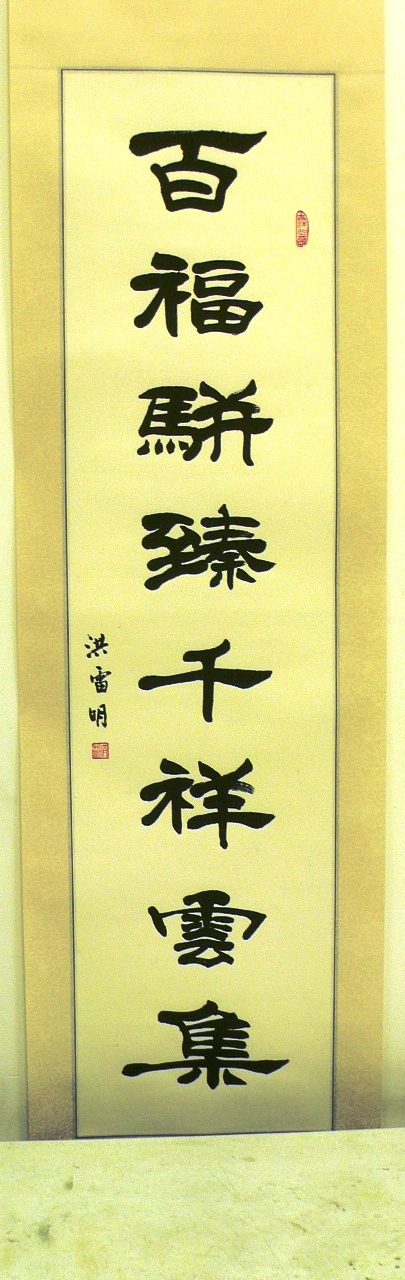 百福駢臻千祥雲集
洪雷明